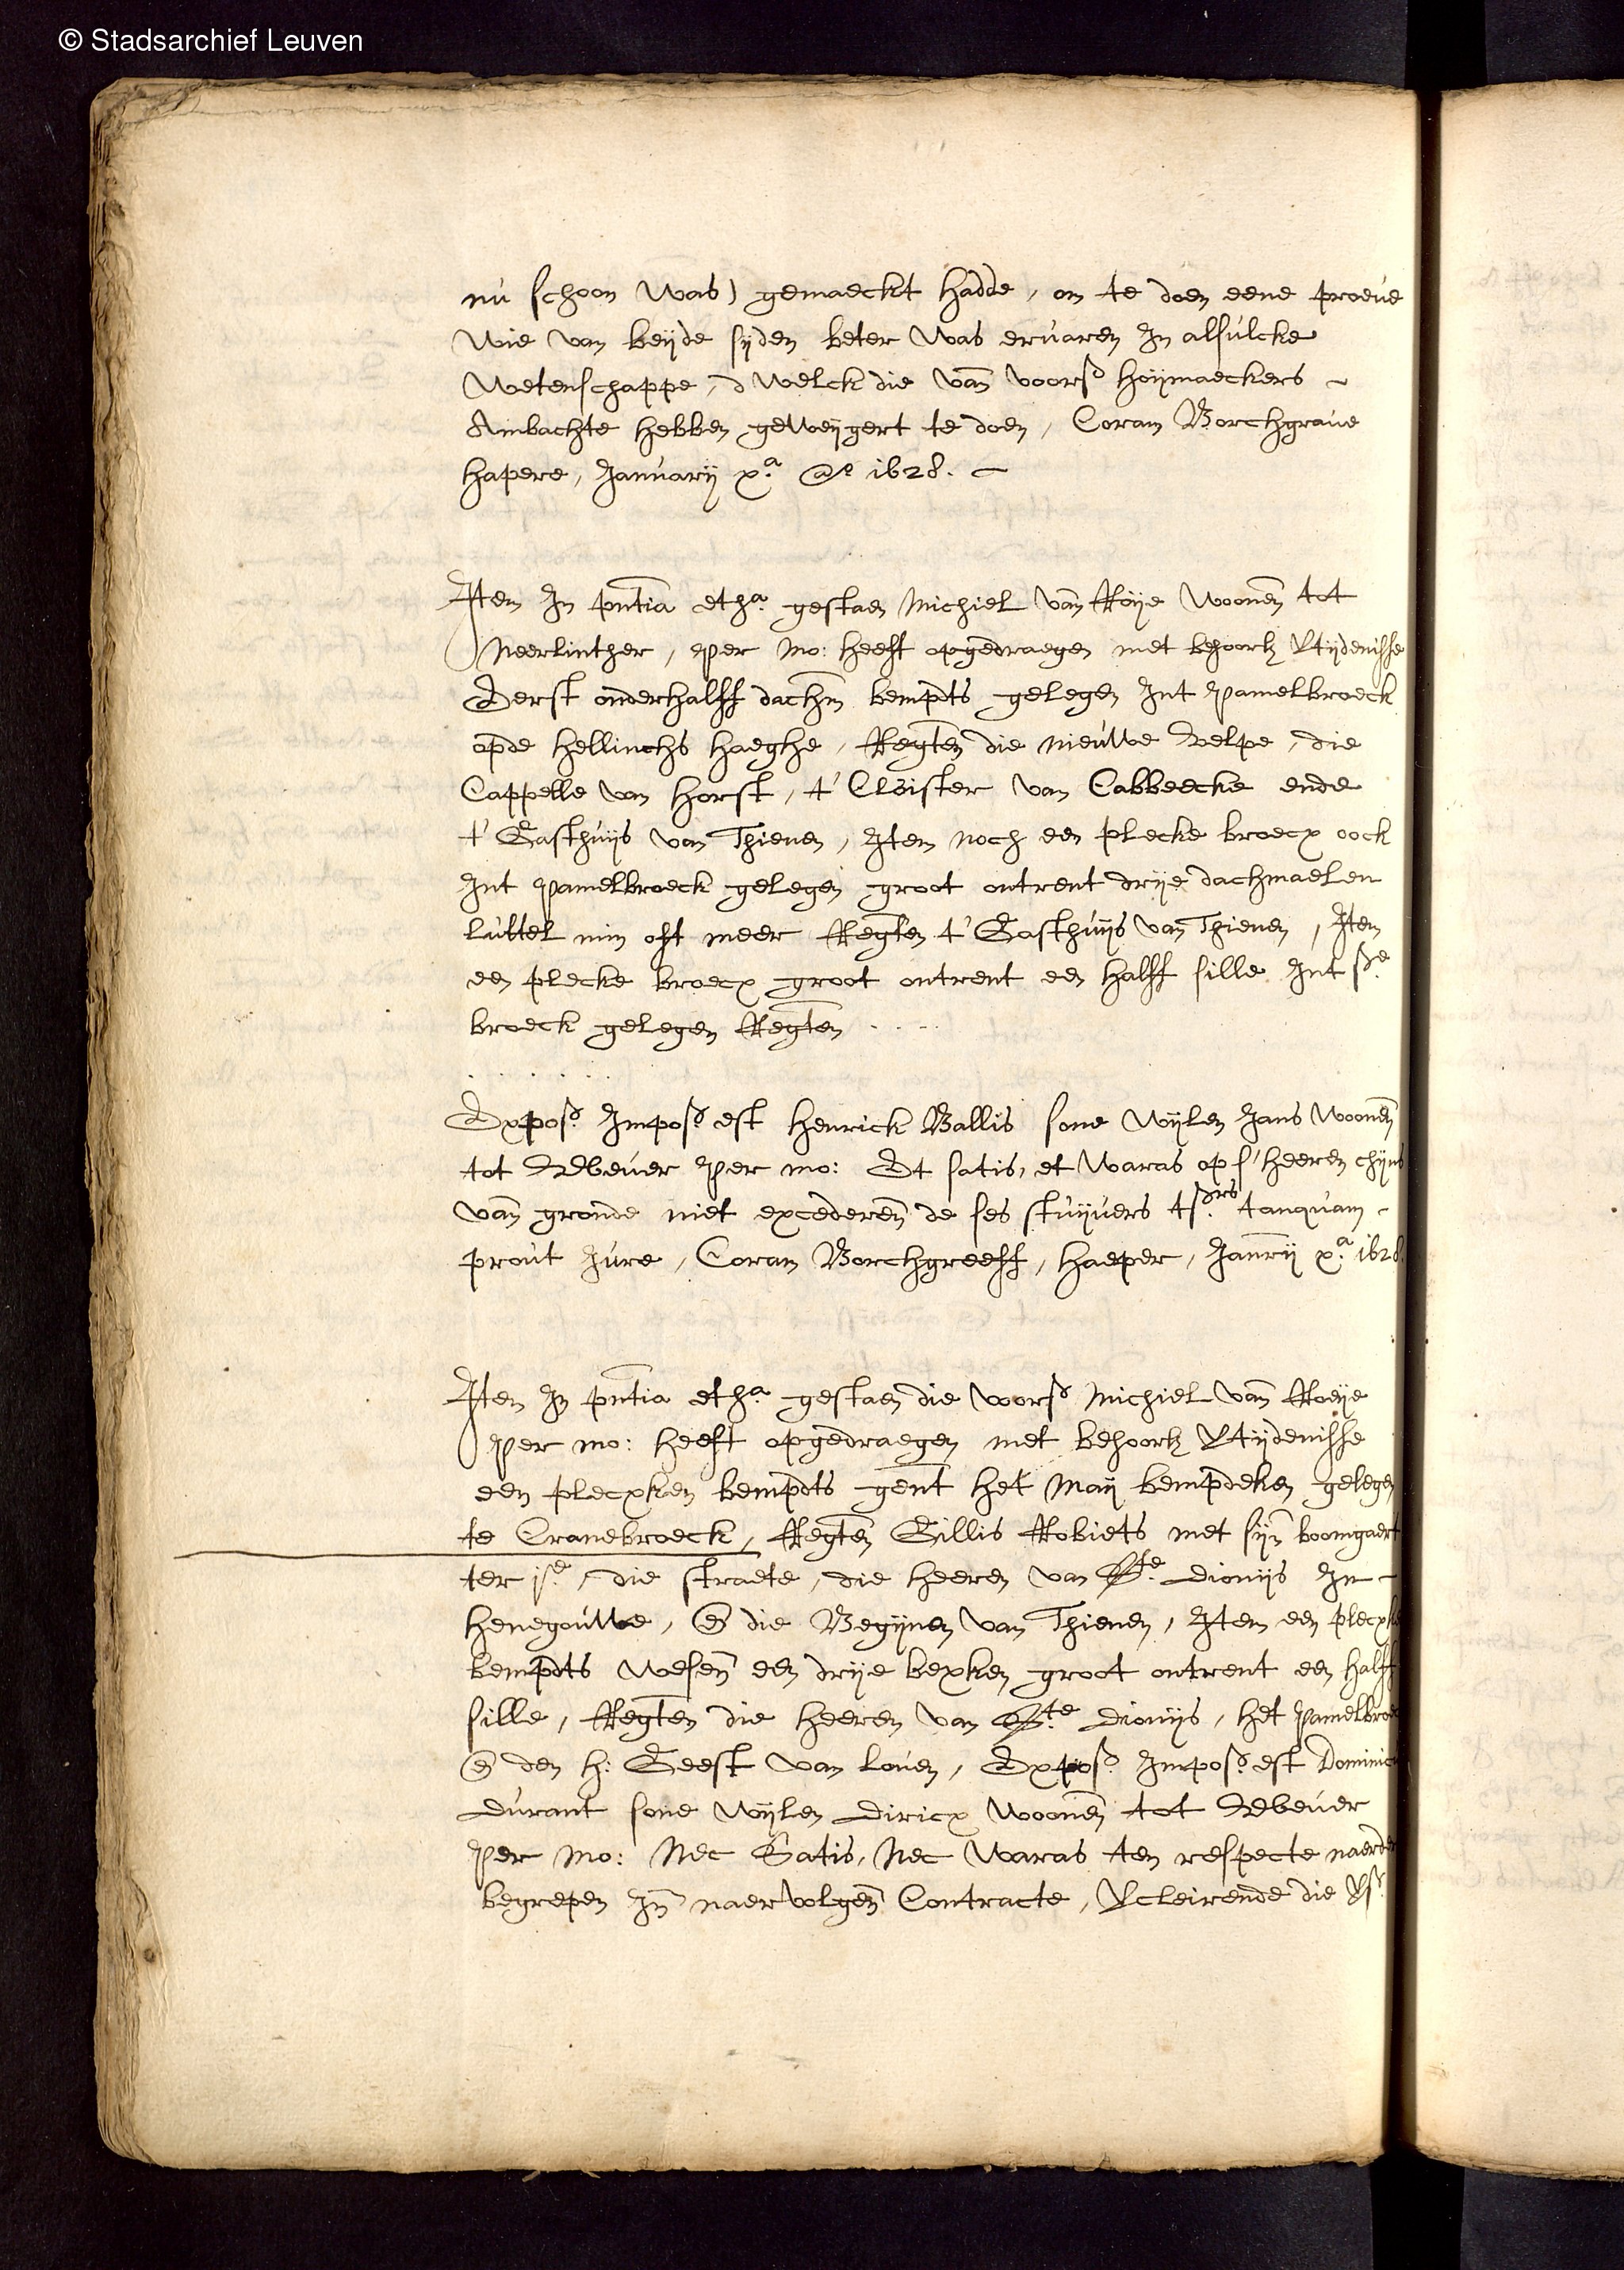 © Stadsarchief Leuven
nu schoon was) gemaeckt hadde, om te doen eene proeve
wie van beyde syden beter was ervaren In alsulcke
wetenschappe, dwelck die van voors hoymaeckers
Ambachte hebben geweygert te doen, Coram Borchgrave
hapere, January xa ao 1628.
Item In pntia etha gestaen Michiel van Roye woonen tot
Neerlinther, per mo: heeft opgedraegen met behoorl vtydenisse
Ierst onderhalff dachm bempts gelegen Int Pamelbroeck
opde hellinchs haeghe, Regten die nieuwe velpe, die
Cappelle van Horst, t' Cloister van Cabbeecke ende
t' Gasthuys van Thienen, Item noch een plecke broecx oock
Int Pamelbroeck gelegen groot ontrent drije dachmaelen
luttel min oft meer Regten t' Gasthuys van Thienen, Item
een plecke broecx groot ontrent een halff sille Int
broeck gelegen Regten . . . .
. . . . . .
Expos Impos est Henrick Ballis sone wylen Jans woonen
tot per mo: Et satis, et waras op s' heeren chyns
van gronde niet excederen de ses stuyvers tsrs tanquam
prout Jure, Coram Borchgreeff, haeper, Janrij xa 1628.
Item In pntia etha gestaen die voors Michiel van Roeye
per mo: heeft opgedraegen met behoorl vtydenisse
een plecxken bempts gent het May bempdeken gelegen
te Cranebroeck, Regten Gillis Robiets met syn boomgaert
ter ire, die straete, die heeren van Ste Dionijs In
henegouwe, en die Begijnen van Thienen, Item een
bempts wesen een drije becxken groot ontrent een halff
sille, Regten die heeren van Ste Dionijs, het
en den H: Geest van Loven, Expos Impos est
Durant sone wylen Diricx woonen tot
per mo: Nec Satis, Nec waras ten respecte
begrepen In naervolgen Contracte, vcleirende die vs